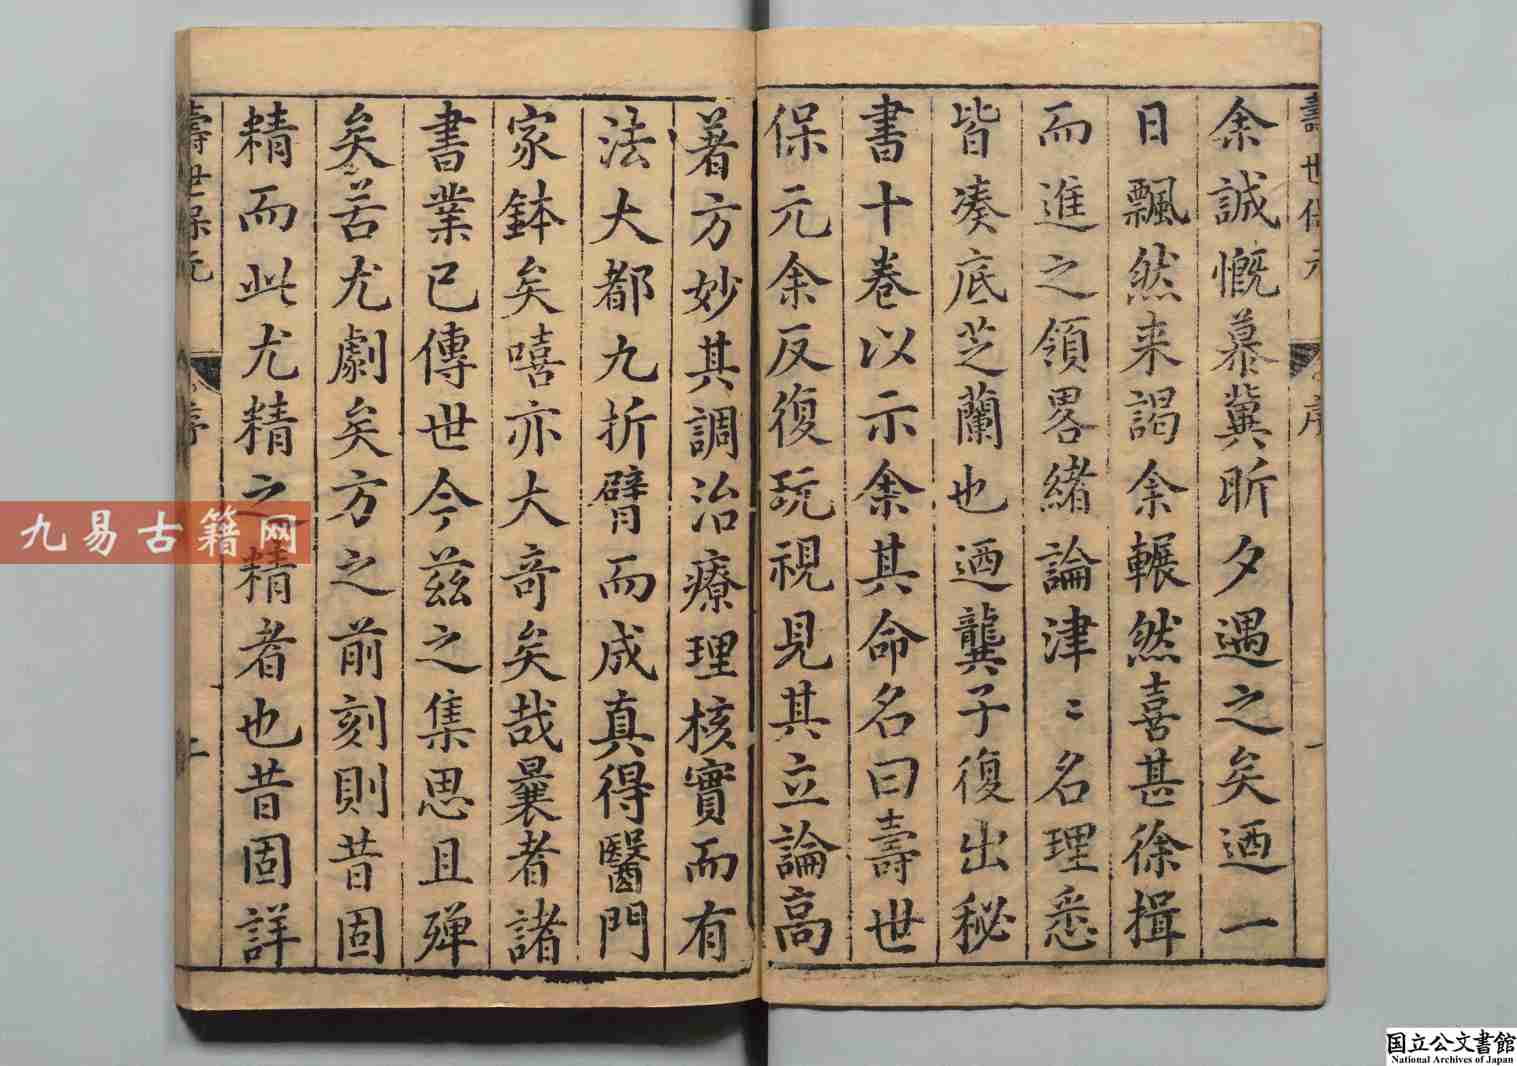 壽世保元
序
一
余誠慨慕冀昕夕遇之矣迺一
日飄然来謁余輾然喜甚徐揖
而進之領畧緒論津〻名理悉
皆凑底芝蘭也迺龔子復出秘
書十卷以示余其命名曰壽世
保元余反復玩視見其立論高
著方妙其調治療理核實而有
法大都九折臂而成真得醫門
家鉢矣嘻亦大竒矣哉曩者諸
書業已傳世今兹之集思且殫
矣苦尤劇矣方之前刻則昔固
精而此尤精之精者也昔固詳
壽世保元
序
二
九易古籍网
国立公文書館
National Archives of Japan